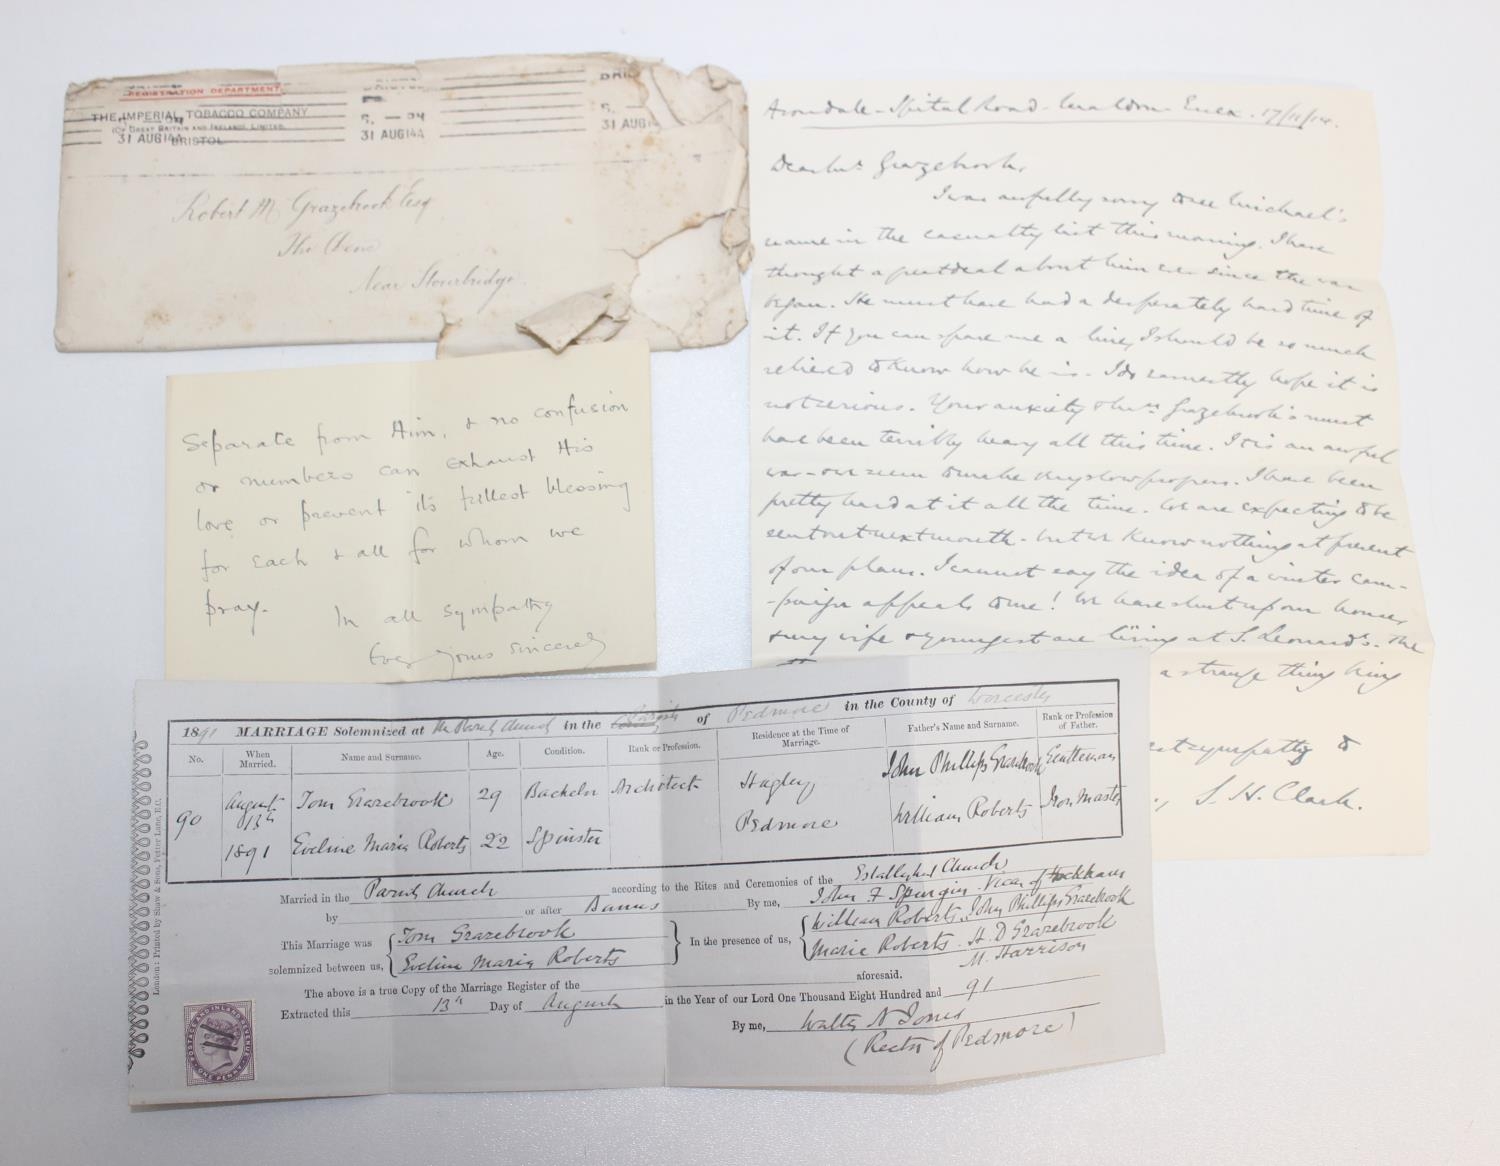 REGISTRATION DEPARTMENT
THE IMPERIAL TOBACCO COMPANY
(OF GREAT BRITAIN AND IRELAND), LIMITED.
BRISTOL
31 AUG 14
31 AUG 14
31 AUG
Robert M Grazebrook Esq
The Dene
Near Stourbridge.
Separate from Him, & no confusion
or numbers can exhaust His
love or prevent its fullest blessing
for each & all for whom we
pray.
In all sympathy
Ever yours sincerely
Avondale - Spital Road - Maldon - Essex. 17/11/14.
Dear Mr Grazebrook,
I was awfully sorry to see Michael's
name in the casualty list this morning. I have
thought a great deal about him ever since the war
began. He must have had a desperately hard time of
it. If you can spare me a line, I should be so much
relieved to know how he is. I do earnestly hope it is
not serious. Your anxiety & Mrs Grazebrook's must
have been terribly heavy all this time. It is an awful
war - one seem to make very slow progress. I have been
pretty hard at it all the time. We are expecting to be
sent out next month - but we know nothing at present
of our plans. I cannot say the idea of a winter cam-
-paign appeals to me! We have shut up our house,
& my wife & youngest are living at S. Leonards. The
a strange thing being
sympathy to
S. H. Clark.
1891 MARRIAGE Solemnized at the Parish Church in the Parish of Pedmore in the County of Worcester
No. When Married. Name and Surname. Age. Condition. Rank or Profession. Residence at the Time of Marriage. Father's Name and Surname. Rank or Profession of Father.
90 August 13th 1891 Tom Grazebrook 29 Bachelor Architect Hagley John Phillips Grazebrook Gentleman
Eveline Maria Roberts 22 Spinster Pedmore William Roberts Iron Master
Married in the Parish Church according to the Rites and Ceremonies of the Established Church
by or after Banns By me, John F Spurgin Vicar of
This Marriage was solemnized between us, Tom Grazebrook Eveline Maria Roberts
In the presence of us, William Roberts John Phillips Grazebrook
Marie Roberts. H. D Grazebrook
M. Harrison
The above is a true Copy of the Marriage Register of the aforesaid.
Extracted this 13th Day of August in the Year of our Lord One Thousand Eight Hundred and 91
By me, Walter N Jones
(Rector of Pedmore)
London: Printed by Shaw & Sons, Fetter Lane, E.C.
POSTAGE AND INLAND REVENUE
ONE PENNY